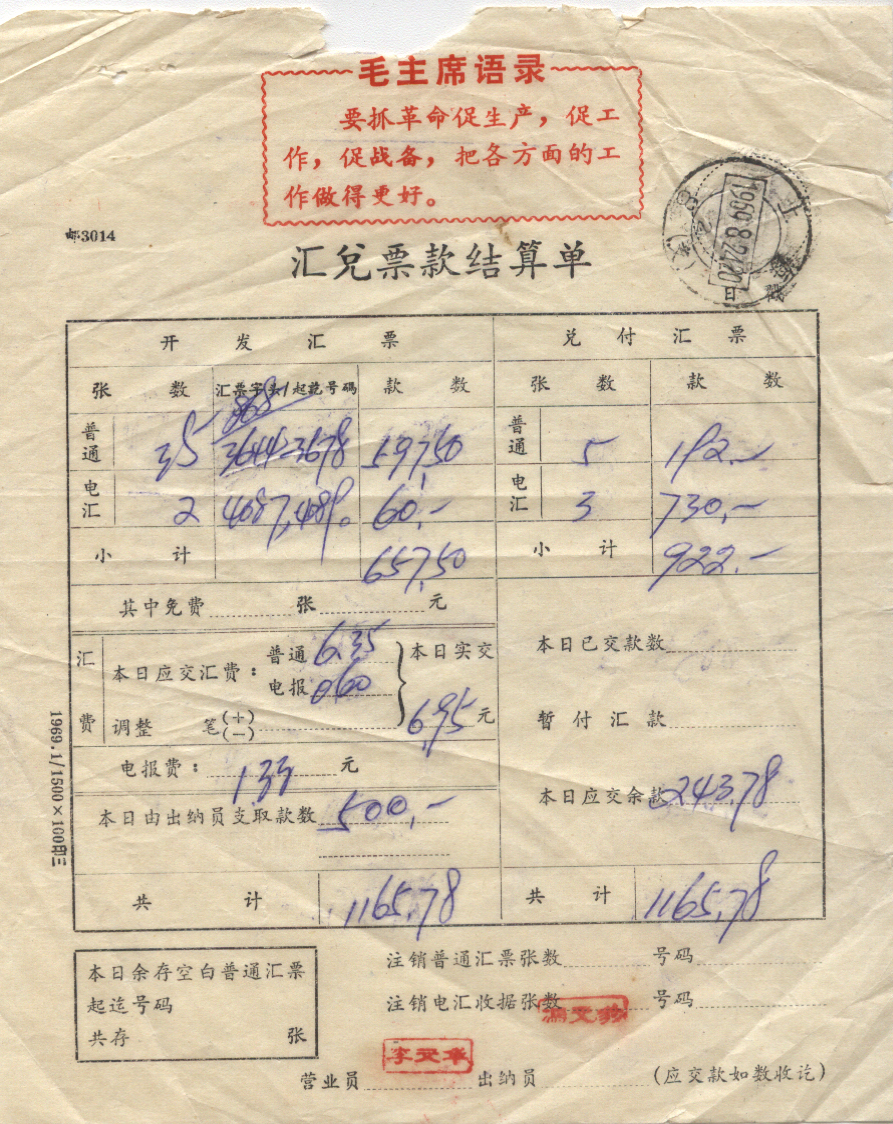 毛主席语录
要抓革命促生产，促工
作，促战备，把各方面的工
作做得更好。
邮3014
1969.8.24
上
日
汇兑票款结算单
开发汇票 兑付汇票
张数 汇票字头/起讫号码 款数 张数 款数
868
普通 35 3644-3678 597,50 普通 5 192.-
电汇 2 4087,4089。 60,- 电汇 3 730,-
小计 657,50 小计 922.-
其中免费 张 元
汇费
本日应交汇费： 普通 6.35 本日实交 本日已交款数
电报 060
调整 笔(+)(-) 6,95 元 暂付汇款
电报费： 1,33 元
本日应交余款 243,78
本日由出纳员支取款数 500,-
共计 1165,78 共计 1165,78
1969.1/1500×100印三
本日余存空白普通汇票
起迄号码
共存 张
注销普通汇票张数 号码
注销电汇收据张数 号码
营业员 出纳员 (应交款如数收讫)